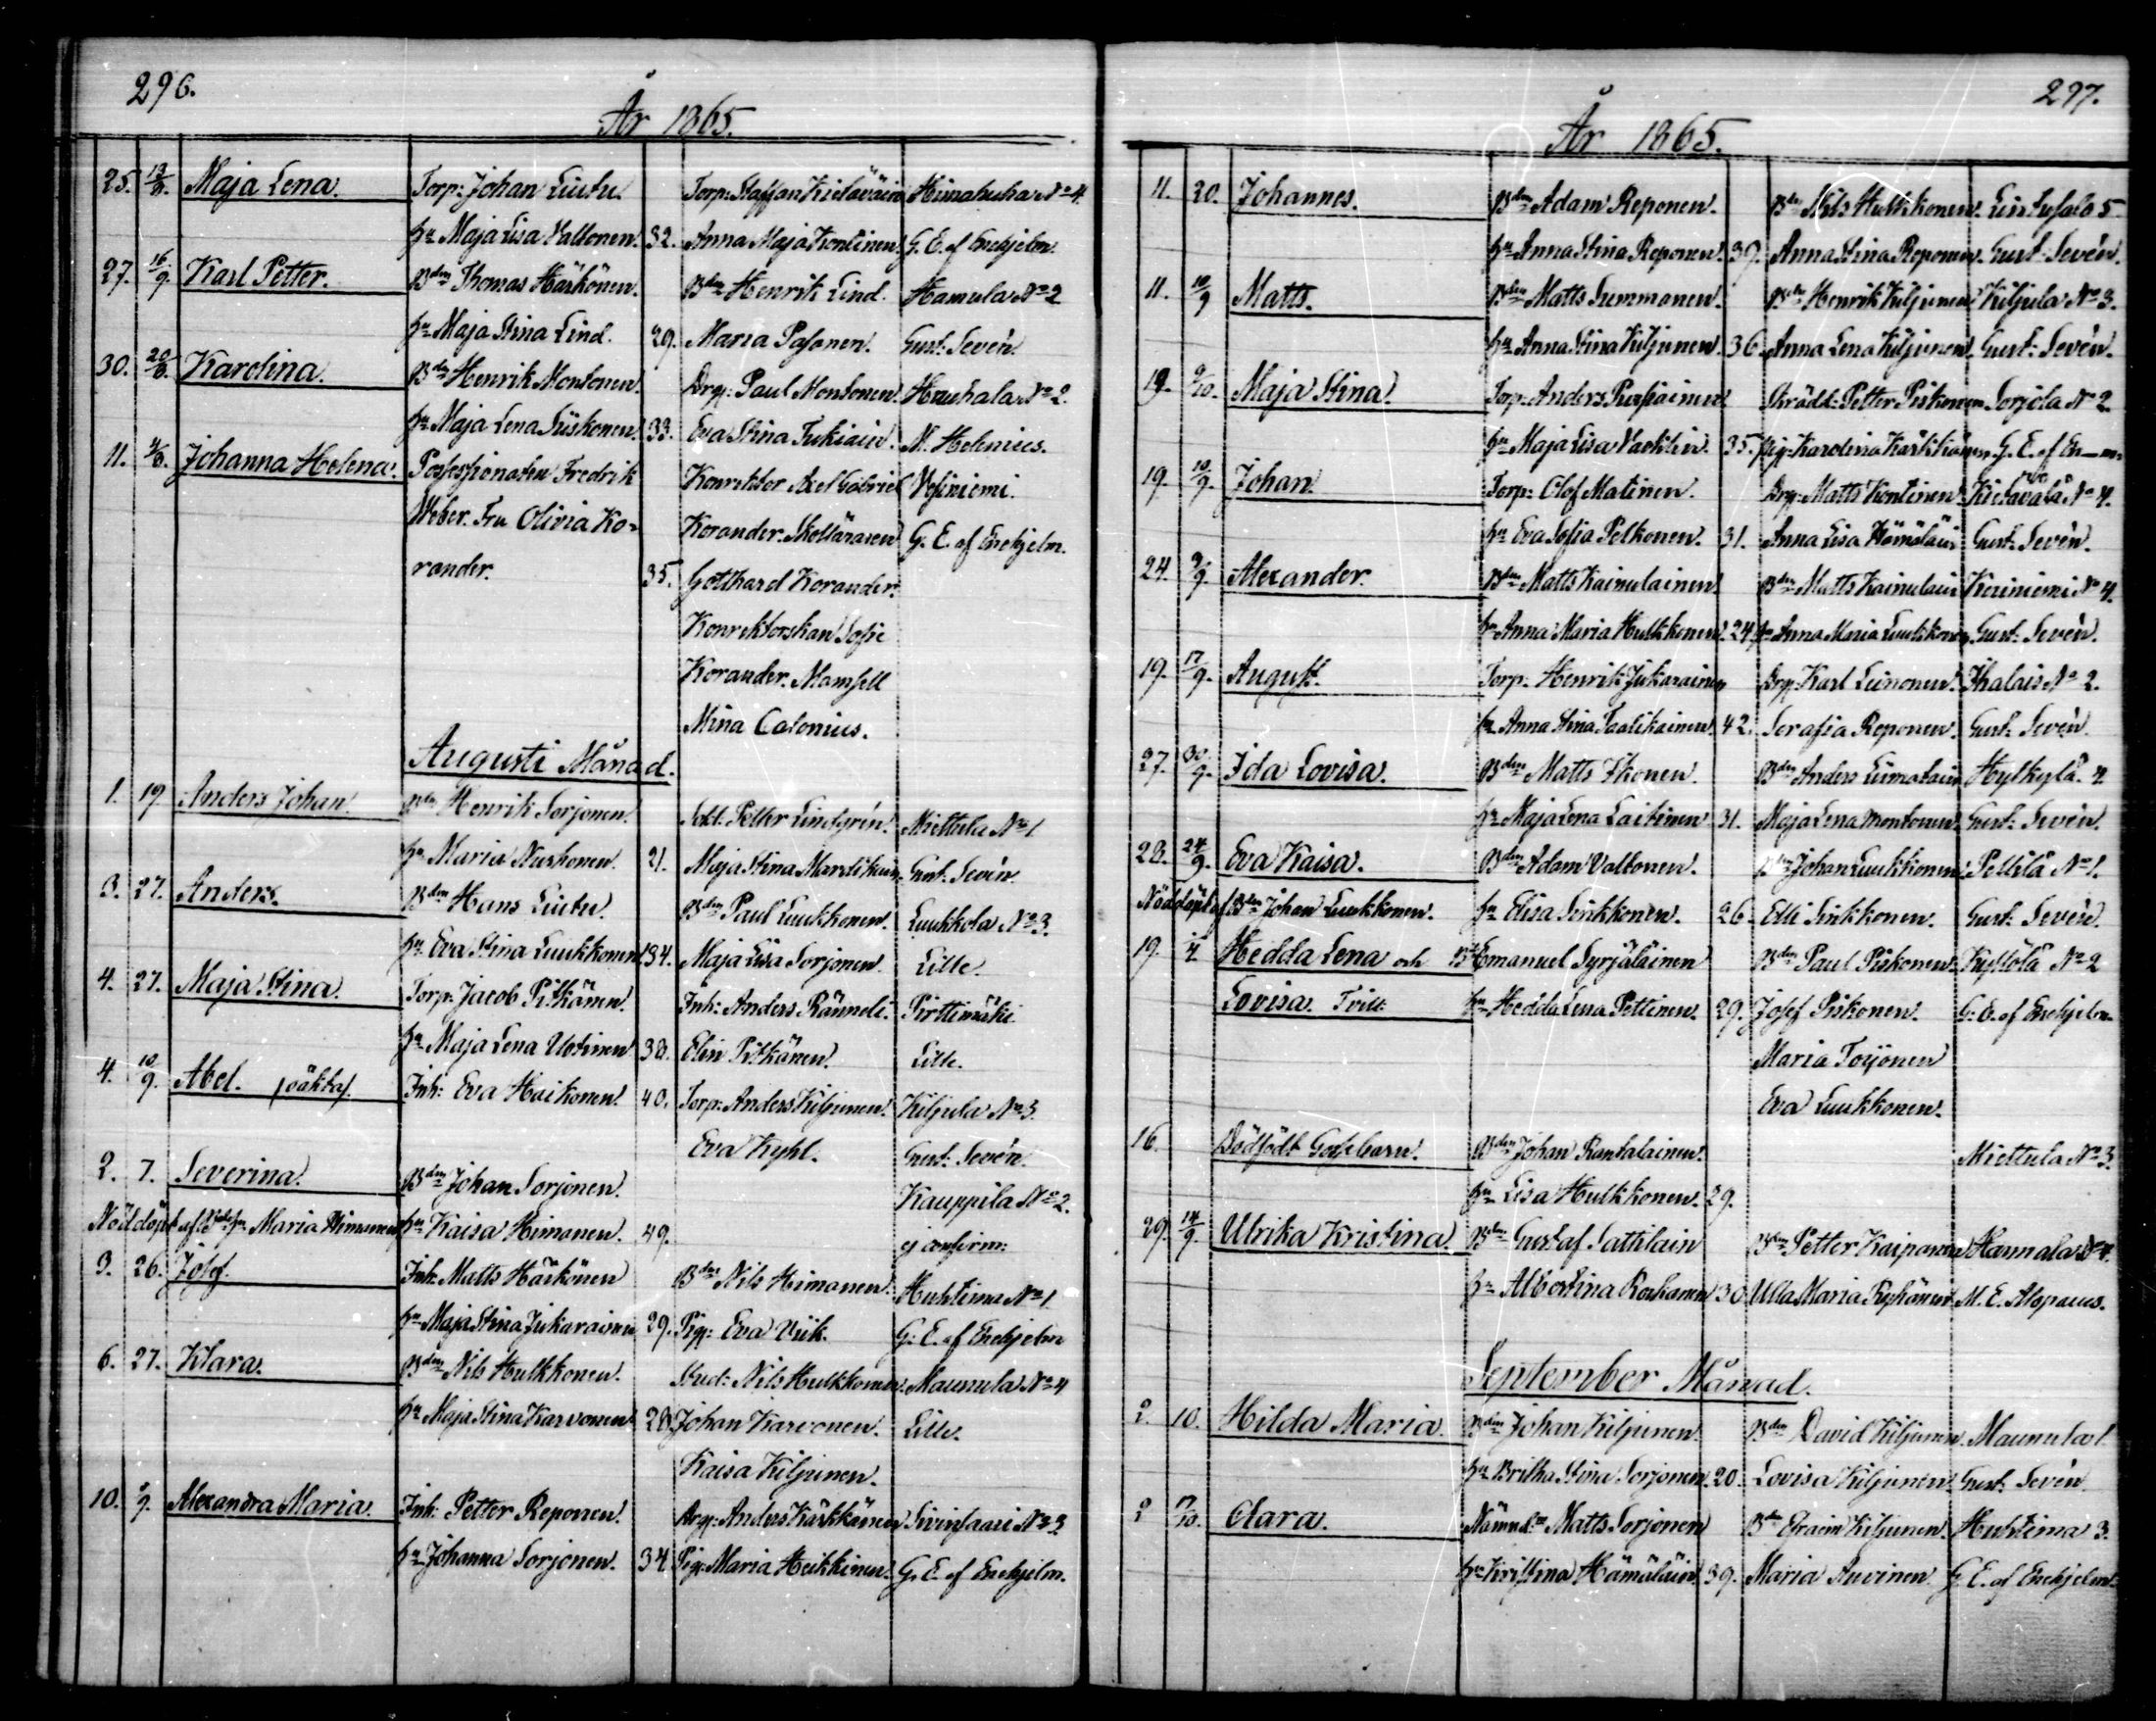 296.
År 1865.
25. 13/8. Maja Lena. Torp: Johan Liutu Torp: Staffan Kietäväin Himahuha No 4.
hu Maja Lisa Valtonen. 32. Anna Maja Kontinen G. E. af Enehjelm.
27. 16/9. Karl Petter. Bdn Thomas Härkönen. Bdn Henrik Lind. Hamula No 2
hu Maja Stina Lind. 29. Maria Pasonen. Gust: Sevén.
30. 20/8. Karolina. Bdn Henrik Montonen. Drg: Paul Montonen. No 2.
hu Maja Lena Siiskonen. 33. Eva Stina Tukiain. N. Helenius.
11. Johanna Helena. Possessionaten Fredrik Konrektor Axel Gabriel Vesiniemi.
Weber. Fru Olivia Ko- Korander. G. E. af Enehjelm.
rander. 35. Gotthard Korander.
Konrektorskan Sofie
Korander. Mamsell
Mina Calonius.
Augusti Månad.
1. 19. Anders Johan. Bdn Henrik Sorjonen. Sold: Petter Lindgrén. Miettula No 1
hu Maria Nuskonen. 21. Maja Stina Gust: Sevén.
3. 27. Anders. Bdn Hans Liutu. Bdn Paul Luukkonen. Luukkola No 3.
hu Eva Stina Luukkonen 34. Maja Lisa Sorjonen. Lille.
4. 27. Maja Stina. Torp: Jacob Pitkänen. Inh: Anders Rämäli. Pirttimäki
hu Maja Lena Uotinen 38. Elin Pitkänen. Lille.
4. 10/9. Abel. (oäkta). Inh: Eva Haikonen. 40. Torp: Anders Kiljunen. Kiljula No 3.
Eva Kyhl. Gust: Sevén.
2. 7. Severina. Bdn Johan Sorjonen. Kauppila No 2.
Nöddöpt af Maria Himanen hu Kaisa Himanen. 49. ej confirm:
3. 26. Josef. Inh: Matts Härkönen Bdn Nils Himanen. Huhtima No 1.
hu Maja Stina Jukarainen 29. Pig: Eva Viik. G. E. af Enehjelm
6. 27. Klara. Bdn Nils Hulkkonen. Stud: Nils Hulkkonen. Maunula No 4
hu Maja Stina Karvonen 28. Johan Karvonen. Lille.
Kaisa Kiljunen.
10. Alexandra Maria. Inh: Petter Reponen. Drg: Anders Kärkkänen Sivinsaari No 3.
hu Johanna Sorjonen. 34. Pig: Maria Heikkinen. G. E. af Enehjelm.
297.
År 1865.
11. 20. Johannes. Bdn Adam Reponen. Bdn Nils Hulkkonen. Lintusalo 5.
hu Anna Stina Reponen. 39. Anna Stina Reponen. Gust: Sevén.
11. 10/9 Matts. Bdn Matts Summanen. Bdn Henrik Kiljunen. Kiljula No 3.
hu Anna Stina Kiljunen. 36. Anna Lena Kiljunen. Gust: Sevén.
19. 9/10. Maja Stina. Torp: Anders Purhiainen Skrädd: Petter Piskonen Sorjola No 2.
hu Maja Lisa 35. Pig: Karolina Kärkkänen G. E. af En—m
19. 10/9. Johan. Torp: Olof Matinen. Drg: Matts Kontinen. Kietävälä No 4.
hu Eva Sofia Pelkonen. 31. Anna Lisa Hämäläin Gust: Sevén.
24. Alexander. Bdn Matts Kainulainen. Bdn Matts Kainulain Koriniemi No 4.
hu Anna Maria Hulkkonen. 24. hu Anna Maria Luukkonen. Gust: Sevén.
19. 17/9. August. Torp: Henrik Jukarainen Drg: Karl Leinonen. Ihalais No 2.
hu Anna Stina Taalikainen. 42. Serafia Reponen. Gust: Sevén.
27. 30/9. Ida Lovisa. Bdn Matts Ikonen. Bdn Anders Liimatain Hylkylä. 4
hu Maja Lena Laitinen 31. Maja Lena Montonen. Gust: Sevén.
28. 24/9. Eva Kaisa. Bdn Adam Valtonen. Bdn Johan Luukkonen. Pellilä No 1.
Nöddöpt af Bdn Johan Luukkonen. hu Elisa Sinkkonen. 26. Elli Sinkkonen. Gust: Sevén.
19. Hedda Lena och Bdn Emanuel Syrjäläinen Bdn Paul Piskonen. Kystölä No 2
Lovisa. Tvill: hu Hedda Lena Pettinen. 29. Josef Piskonen. G: E. af Enehjelm
Maria Torjonen
Eva Luukkonen.
16. Dödfödt Gossebarn. Bdn Johan Rantalainen. Miettula No 3.
hu Lisa Hulkkonen. 29.
29. 14/9. Ulrika Kristina. Bdn Gustaf Lattilain Bdn Petter Kaipainen Hannala No 4.
hu Albertina Rouhanen 30. Ulla Maria M. E. Alopaeus.
September Månad.
2. 10. Hilda Maria. Bdn Johan Kiljunen. Bdn David Kiljunen. Maunula 1.
hu Britha Stina Sorjonen. 20. Lovisa Kiljunen. Gust: Sevén.
2 17/10. Clara. Nämnd:n Matts Sorjonen Bdn Efraim Kiljunen. Huhtima 3.
hu Kristina Hämäläin. 39. Maria Auvinen. G. E. af Enehjelm.